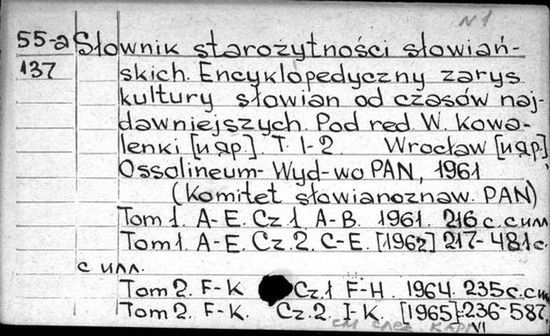 N 1
55-a Słownik starożytności słowiań-
137 skich. Encyklopedyczny zarys
kultury słowian od czasów naj-
dawniejszych. Pod red. W. Kowa-
lenki [и др.]. T. 1-2. Wrocław [и др.]
Ossolineum- Wyd-wo PAN, 1961
(Komitet słowianoznaw. PAN)
Tom 1. A-E. Cz. 1 A-B. 1961. 216 с. илл
Tom 1. A-E. Cz. 2. C-E. [1962] 217-481 с.
с илл.
Tom 2. F-K Cz. 1 F-H. 1964. 235 с. с
Tom 2. F-K. Cz. 2. I-K. [1965]. 236-587